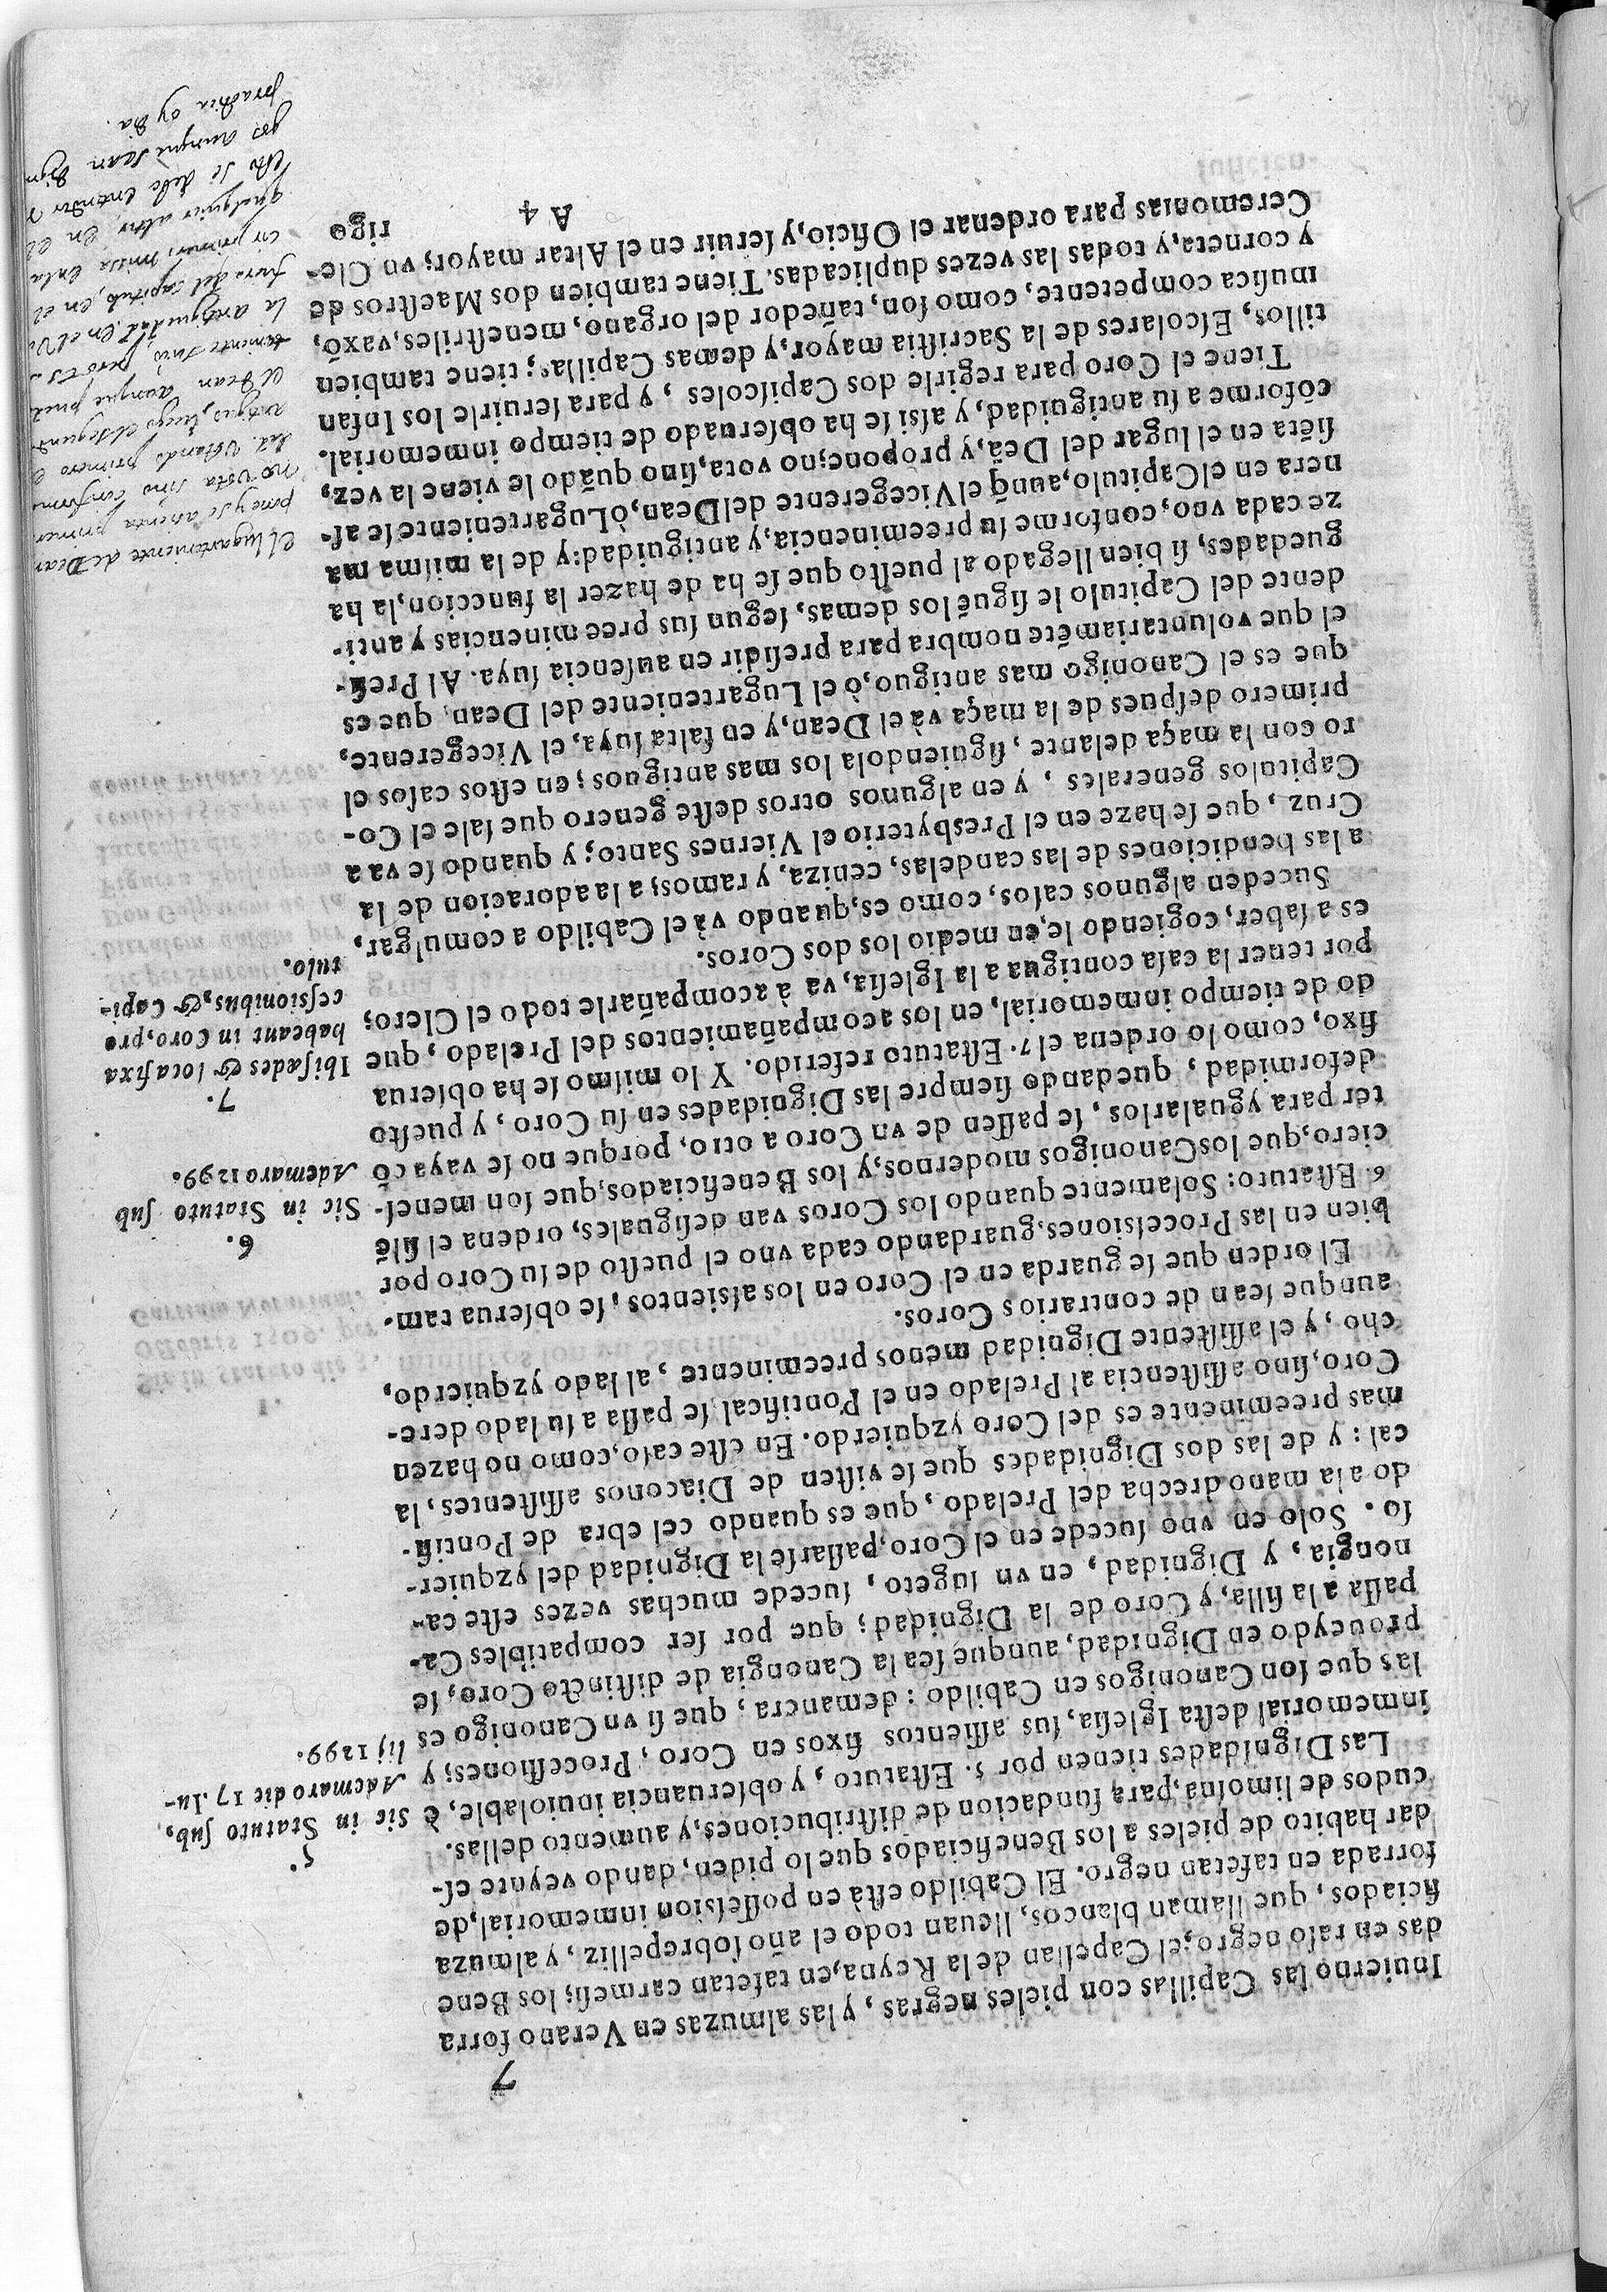 7
Inuierno las Capillas con pieles negras, y las almuzas en Verano forra
das en raso negro; el Capellan de la Reyna, en tafetan carmesi; los Bene
ficiados, que llaman blancos, lleuan todo el año sobrepelliz, y almuza
forrada en tafetan negro. El Cabildo està en possession inmemorial, de
dar habito de pieles a los Beneficiados que lo piden, dando veynte es-
cudos de limosna, para fundacion de distribuciones, y aumento dellas.
Las Dignidades tienen por 5. Estatuto, y obseruancia inuiolable, è
inmemorial desta Iglesia, sus assientos fixos en Coro, Processiones, y
las que son Canonigos en Cabildo: demanera, que si vn Canonigo es
proueydo en Dignidad, aunque sea la Canongia de distincto Coro, se
passa a la silla, y Coro de la Dignidad; que por ser compatibles Ca-
nongia, y Dignidad, en vn sugeto, sucede muchas vezes este ca-
so. Solo en vno sucede en el Coro, passarse la Dignidad del yzquier-
do a la mano drecha del Prelado, que es quando celebra de Pontifi-
cal: y de las dos Dignidades que se visten de Diaconos assistentes, la
mas preeminente es del Coro yzquierdo. En este caso, como no hazen
Coro, sino assistencia al Prelado en el Pontifical, se passa a su lado dere-
cho, y el assistente Dignidad menos preeminente, al lado yzquierdo,
aunque sean de contrarios Coros.
El orden que se guarda en el Coro en los assientos, se obserua tam-
bien en las Processiones, guardando cada vno el puesto de su Coro por
6. Estatuto: Solamente quando los Coros van desiguales, ordena el silē
ciero, que los Canonigos modernos, y los Beneficiados, que son menes-
ter para ygualarlos, se passen de vn Coro a otro, porque no se vaya cō
deformidad, quedando siempre las Dignidades en su Coro, y puesto
fixo, como lo ordena el 7. Estatuto referido. Y lo mismo se ha obserua
do de tiempo inmemorial, en los acompañamientos del Prelado, que
por tener la casa contigua a la Iglesia, va à acompañarle todo el Clero;
es a saber, cogiendole en medio los dos Coros.
Suceden algunos casos, como es, quando và el Cabildo a comulgar,
a las bendiciones de las candelas, ceniza, y ramos; a la adoracion de la
Cruz, que se haze en el Presbyterio el Viernes Santo; y quando se va a
Capitulos generales, y en algunos otros deste genero que sale el Co-
ro con la maça delante, siguiendola los mas antiguos; en estos casos el
primero despues de la maça và el Dean, y en falta suya, el Vicegerente,
que es el Canonigo mas antiguo, ò el Lugarteniente del Dean, que es
el que voluntariamēte nombra para presidir en ausencia suya. Al Presi-
dente del Capitulo le siguē los demas, segun sus preeminencias y anti-
guedades, si bien llegado al puesto que se ha de hazer la funccion, la ha
ze cada vno, conforme su preeminencia, y antiguidad: y de la misma ma
nera en el Capitulo, aunq̄ el Vicegerente del Dean, ò Lugarteniente se as-
siēta en el lugar del Deā, y propone; no vota, sino quādo le viene la vez,
cōforme a su antiguidad, y assi se ha obseruado de tiempo inmemorial.
Tiene el Coro para regirle dos Capiscoles, y para seruirle los Infan
tillos, Escolares de la Sacristia mayor, y demas Capillas; tiene tambien
musica competente, como son, tañedor del organo, menestriles, vaxō,
y corneta, y todas las vezes duplicadas. Tiene tambien dos Maestros de
Ceremonias para ordenar el Oficio, y seruir en el Altar mayor; vn Cle-
A 4
rigo
5.
Sic in Statuto sub,
Ademaro die 17. Iu-
lij 1299.
6.
Sic in Statuto sub
Ademaro 1299.
7.
Ibi sades & loca fixa
habeant in Coro, pro
cessionibus, & Capi-
tulo.
El lugarteniente de Dean
no vota sino conforme
el Dean aunque
la antiguidad, en el
fuera del capitulo, en el
qualquier altro en el
se debe entender
aunque sean
practica oy dia.